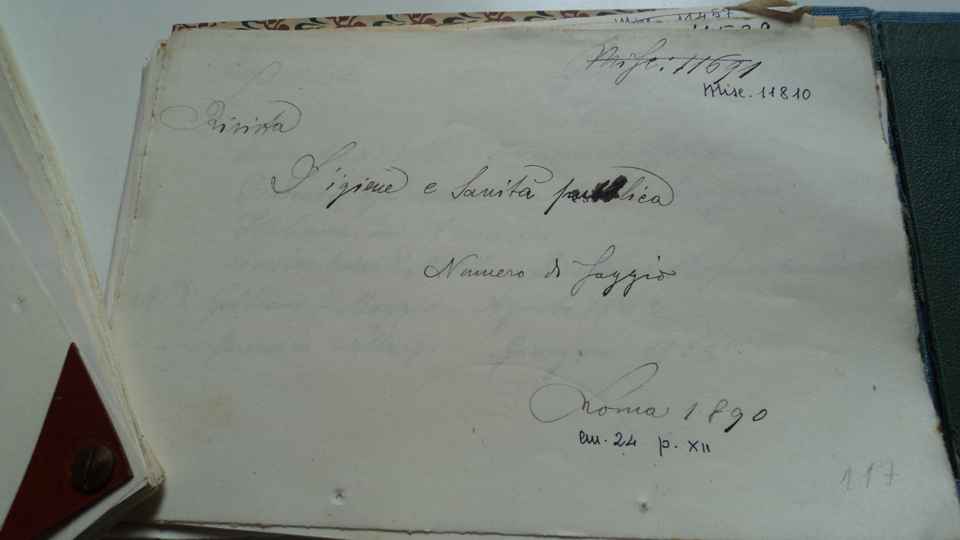 Misc. 11457
Misc. 11691
Misc. 11810
Rivista
D'igiene e Sanità pubblica
Numero di Saggio
Roma 1890
em. 24 p. XII
117